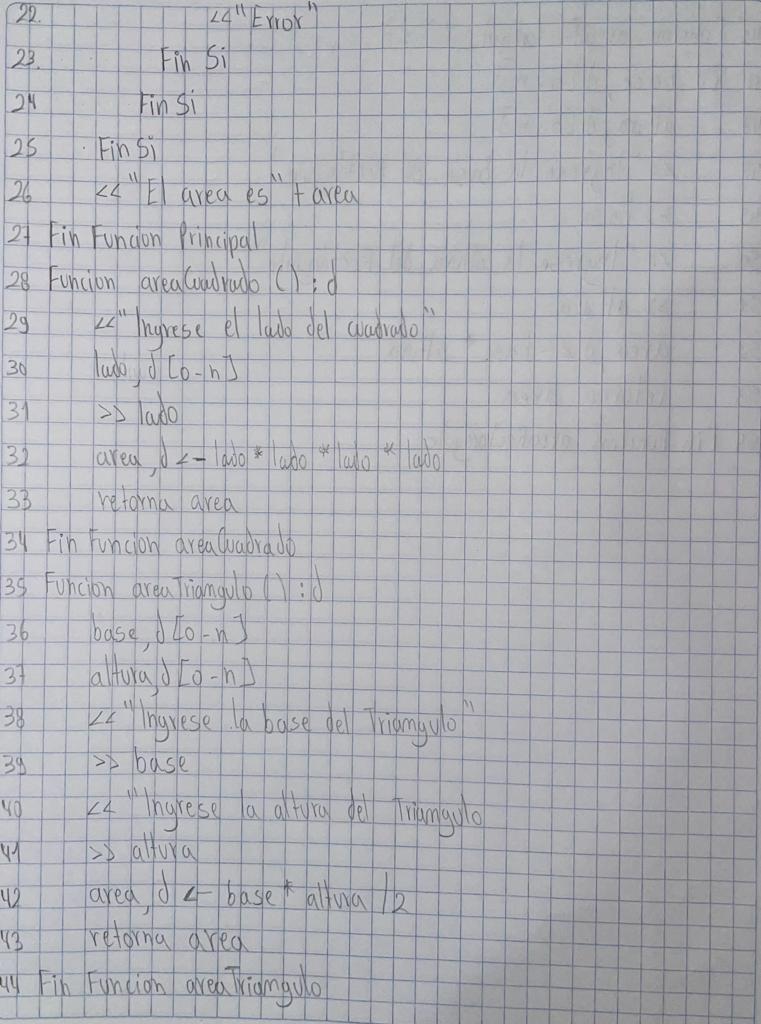 22. <<"Error"
23. Fin Si
24 Fin Si
25 Fin Si
26 <<"El area es" + area
27 Fin Funcion Principal
28 Funcion areaCuadrado () : d
29 <<"Ingrese el lado del cuadrado"
30 lado, d [0-n]
31 >> lado
32 area, d <- lado * lado * lado * lado
33 retorna area
34 Fin Funcion areaCuadrado
35 Funcion areaTriangulo () : d
36 base, d [0-n]
37 altura, d [0-n]
38 <<"Ingrese la base del Triangulo"
39 >> base
40 <<"Ingrese la altura del Triangulo
41 >> altura
42 area, d <- base * altura /2
43 retorna area
44 Fin Funcion areaTriangulo